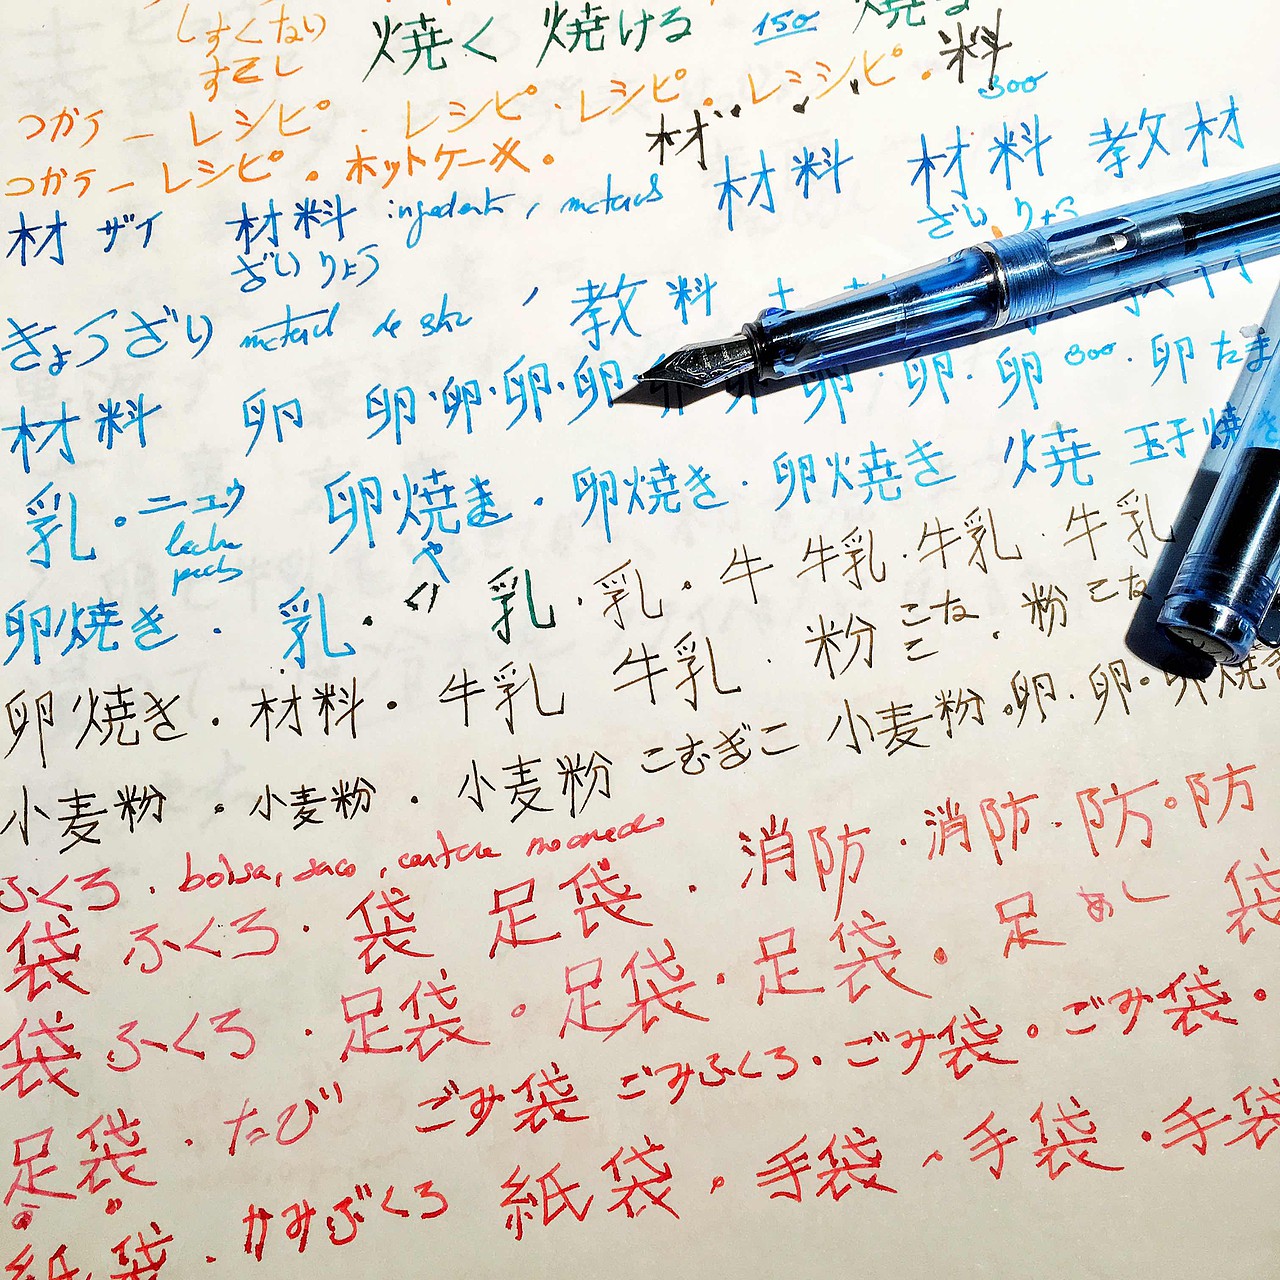 しすくない 焼く 焼ける 150 焼ける
すこし
つかう ー レシピ ・ レシピ ・ レシピ 。 レシピ 。 料
300
つかう ー レシピ 。 ホットケーキ 。 材
材 ザイ 材料 材料 材料 教材
ざいりょう ざいりょう
きょうざい 教料
材料 卵 卵・卵・卵・卵・卵 卵 卵・卵・卵 300・卵 たま
乳・ニュウ 卵焼き・卵焼き・卵焼き 焼 玉子焼き
や
卵焼き・乳・乳・乳・牛 牛乳・牛乳・牛乳
卵焼き・材料・牛乳 牛乳・粉 こな・粉 こな
こ
小麦粉・小麦粉・小麦粉 こむぎこ 小麦粉・卵・卵・卵焼き
ふくろ・bolsa, saco,
袋 ふくろ・袋 足袋・消防・消防・防・防
袋 ふくろ・足袋・足袋・足袋・足 あし 袋
足袋・たび ごみ袋 ごみふくろ・ごみ袋・ごみ袋・
紙袋・かみぶくろ 紙袋・手袋・手袋・手袋